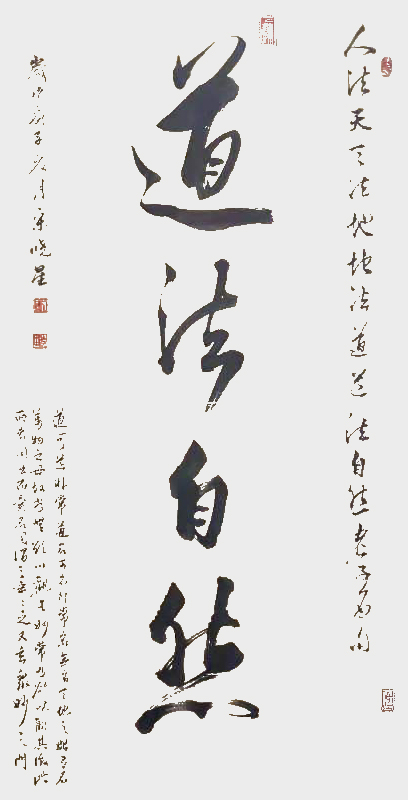 人法天天法地地法道道法自然老子名句
道法自然
歲次庚子夏月宋曉星
道可道非常道名可名非常名無名天地之始有名
萬物之母故常無欲以觀其妙常有欲以觀其徼此
兩者同出而異名同謂之玄玄之又玄眾妙之門